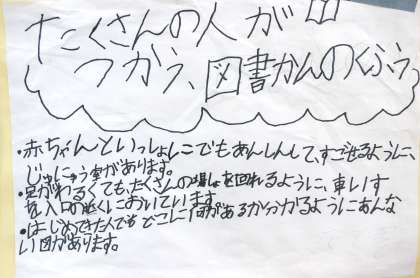 たくさんの人が
つかう、図書かんのくふう
・赤ちゃんといっしょにでもあんしんして、すごせるように、
じゅにゅう室があります。
・足がわるくても、たくさんの場しょを回れるように、車いす
を入口の近くにおいています。
・はじめてきた人でもどこに何があるか分かるようにあんな
い図があります。